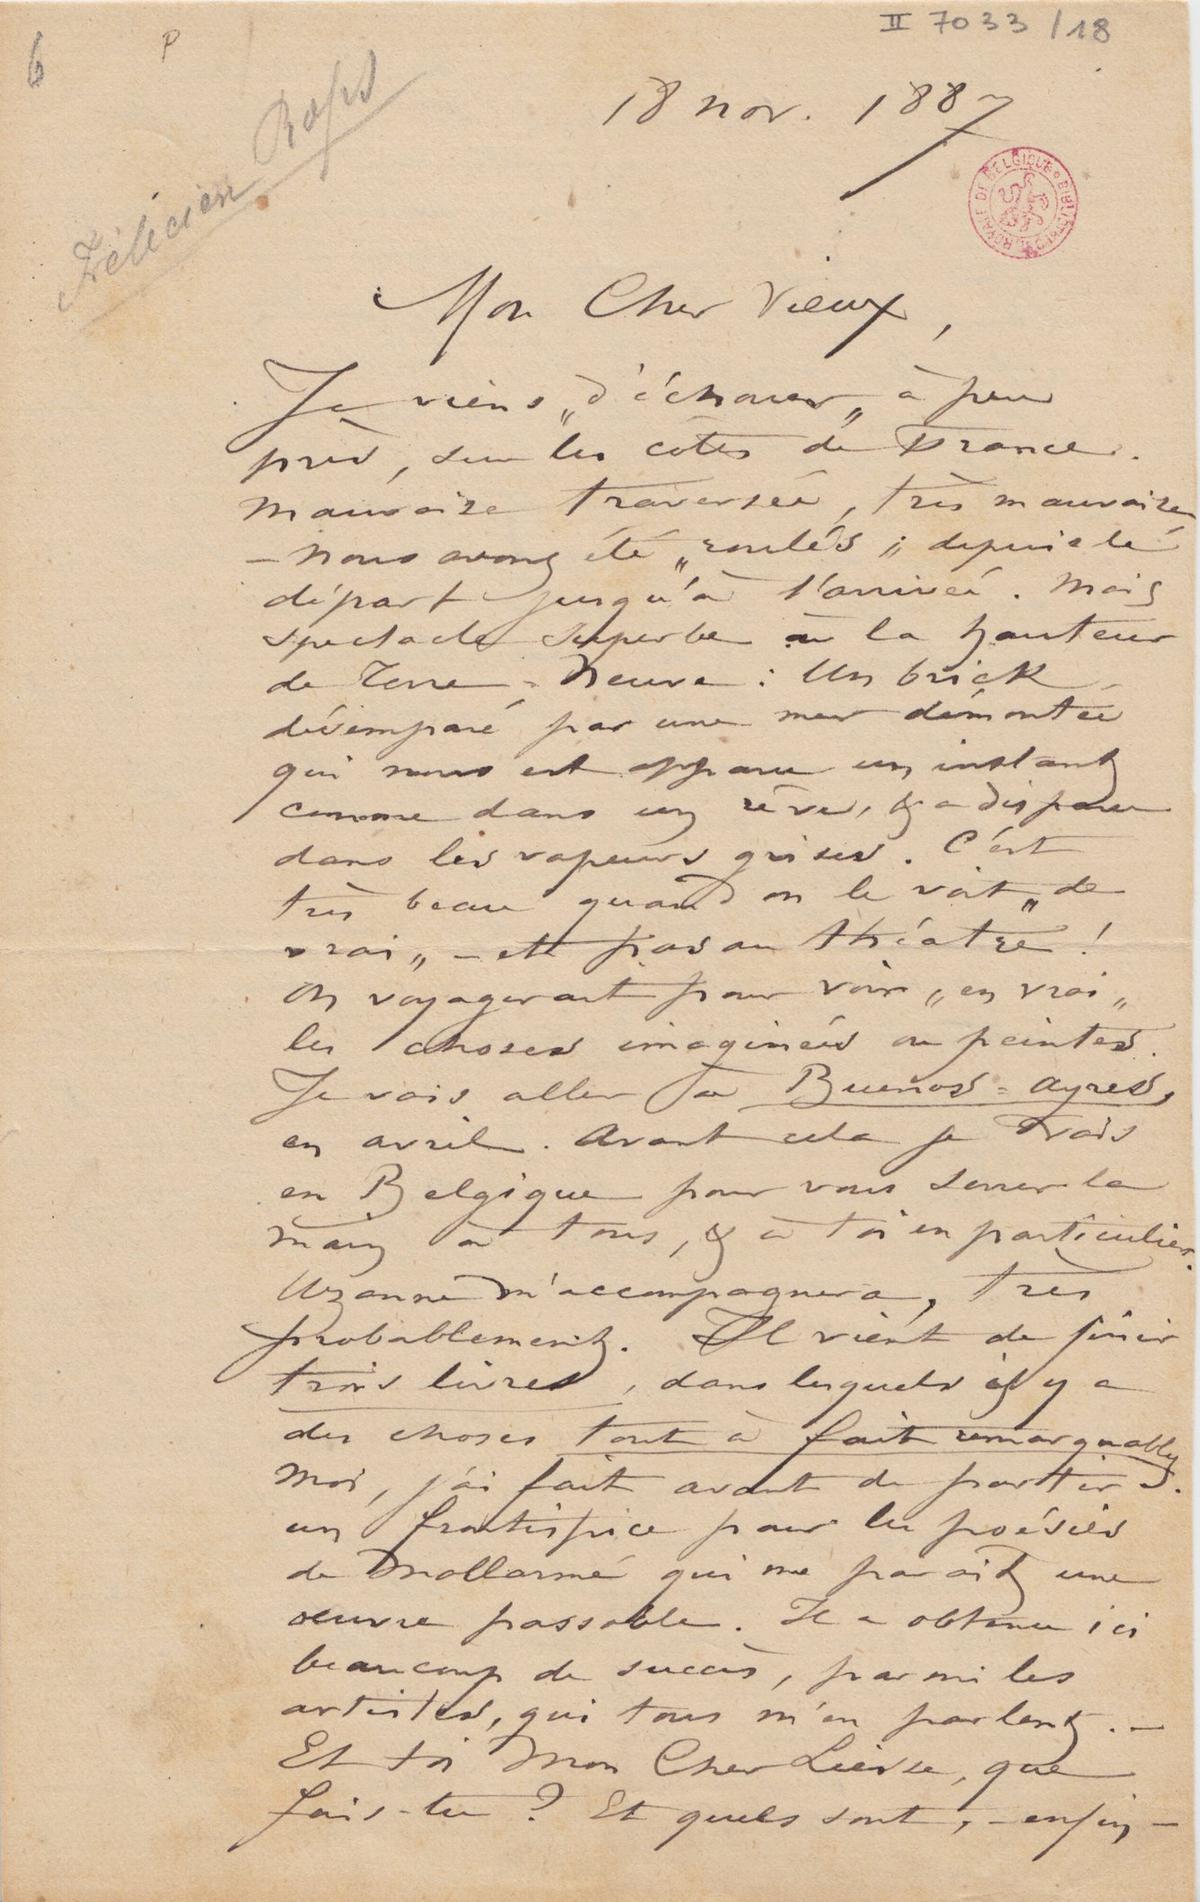 II 7033 / 18
6
P
Félicien Rops
18 nov. 1887
BIBLIOTH. ROYALE DE BELGIQUE
Mon Cher Vieux,
Je viens „d'échouer„ à peu
près, sur les côtes de France.
Mauvaise traversée, très mauvaise
– Nous avons été „roulés„ depuis le
départ jusqu'à l'arrivée. Mais
spectacle superbe à la hauteur
de Terre-Neuve : Un brick
désemparé par une mer démontée
qui nous est apparu un instant
comme dans un rêve, & a disparu
dans les vapeurs grises. C'est
très beau quand on le voit „de
vrai„ – et pas au théatre !
On voyagerait pour voir „en vrai„
les choses imaginées ou peintes.
Je vais aller à Buenos-Ayres,
en avril. Avant cela je vais
en Belgique pour vous serrer la
main à tous, & à toi en particulier.
Uzanne m'accompagnera, très
probablement. Il vient de finir
trois livres, dans lesquels il y a
des choses tout à fait remarquables.
Moi, j'ai fait avant de partir
un frontispice pour les poésies
de Mallarmé qui me parait une
œuvre passable. Il a obtenu ici
beaucoup de succès, parmi les
artistes, qui tous m'en parlent. –
Et toi Mon Cher Liesse, que
fais-tu ? Et quels sont, – enfin –